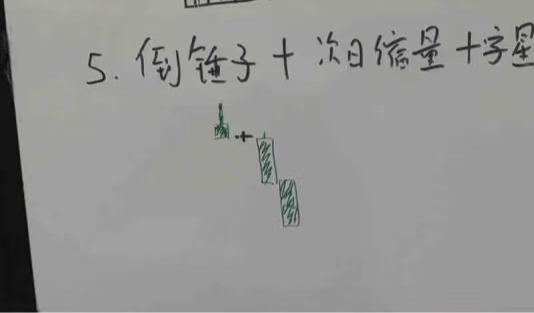 5. 倒锤子+次日倍量+字星
+